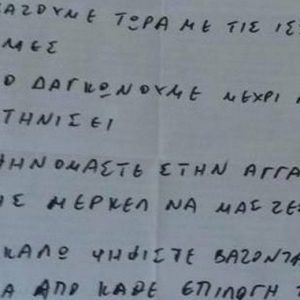 ΑΖΟΥΜΕ ΤΩΡΑ ΜΕ ΤΙΣ ΙΣ
ΜΕΣ
Ο ΔΑΓΚΩΝΟΥΜΕ ΜΕΧΡΙ
ΤΗΝΙΣΕΙ
ΗΝΟΜΑΣΤΕ ΣΤΗΝ ΑΓΓΑ
ΗΣ ΜΕΡΚΕΛ ΝΑ ΜΑΣ ΖΕΣ
ΚΑΛΩ ΨΗΦΙΣΤΕ ΒΑΖΟΝΤΑ
Α ΑΠΟ ΚΑΘΕ ΕΠΙΛΟΓΗ